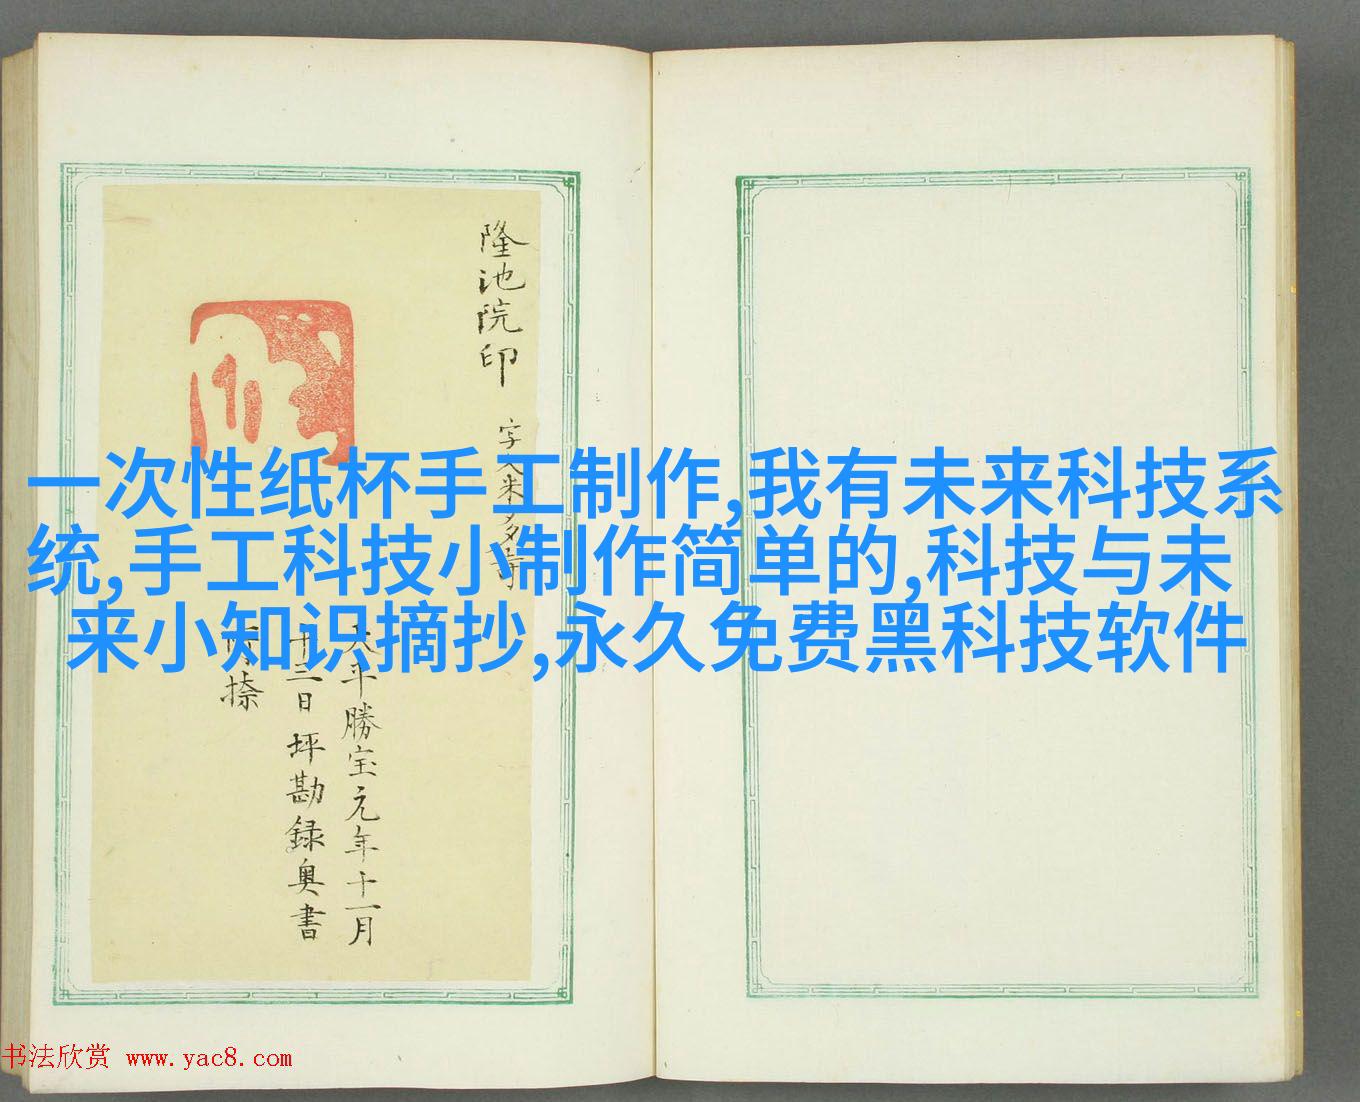 隆池院印
一次性纸杯手工制作,我有未来科技系
统,手工科技小制作简单的,科技与未
来小知识摘抄,永久免费黑科技软件
平勝宝元年十一月
十三日 坪勘録奥書
書法欣赏 www.yac8.com